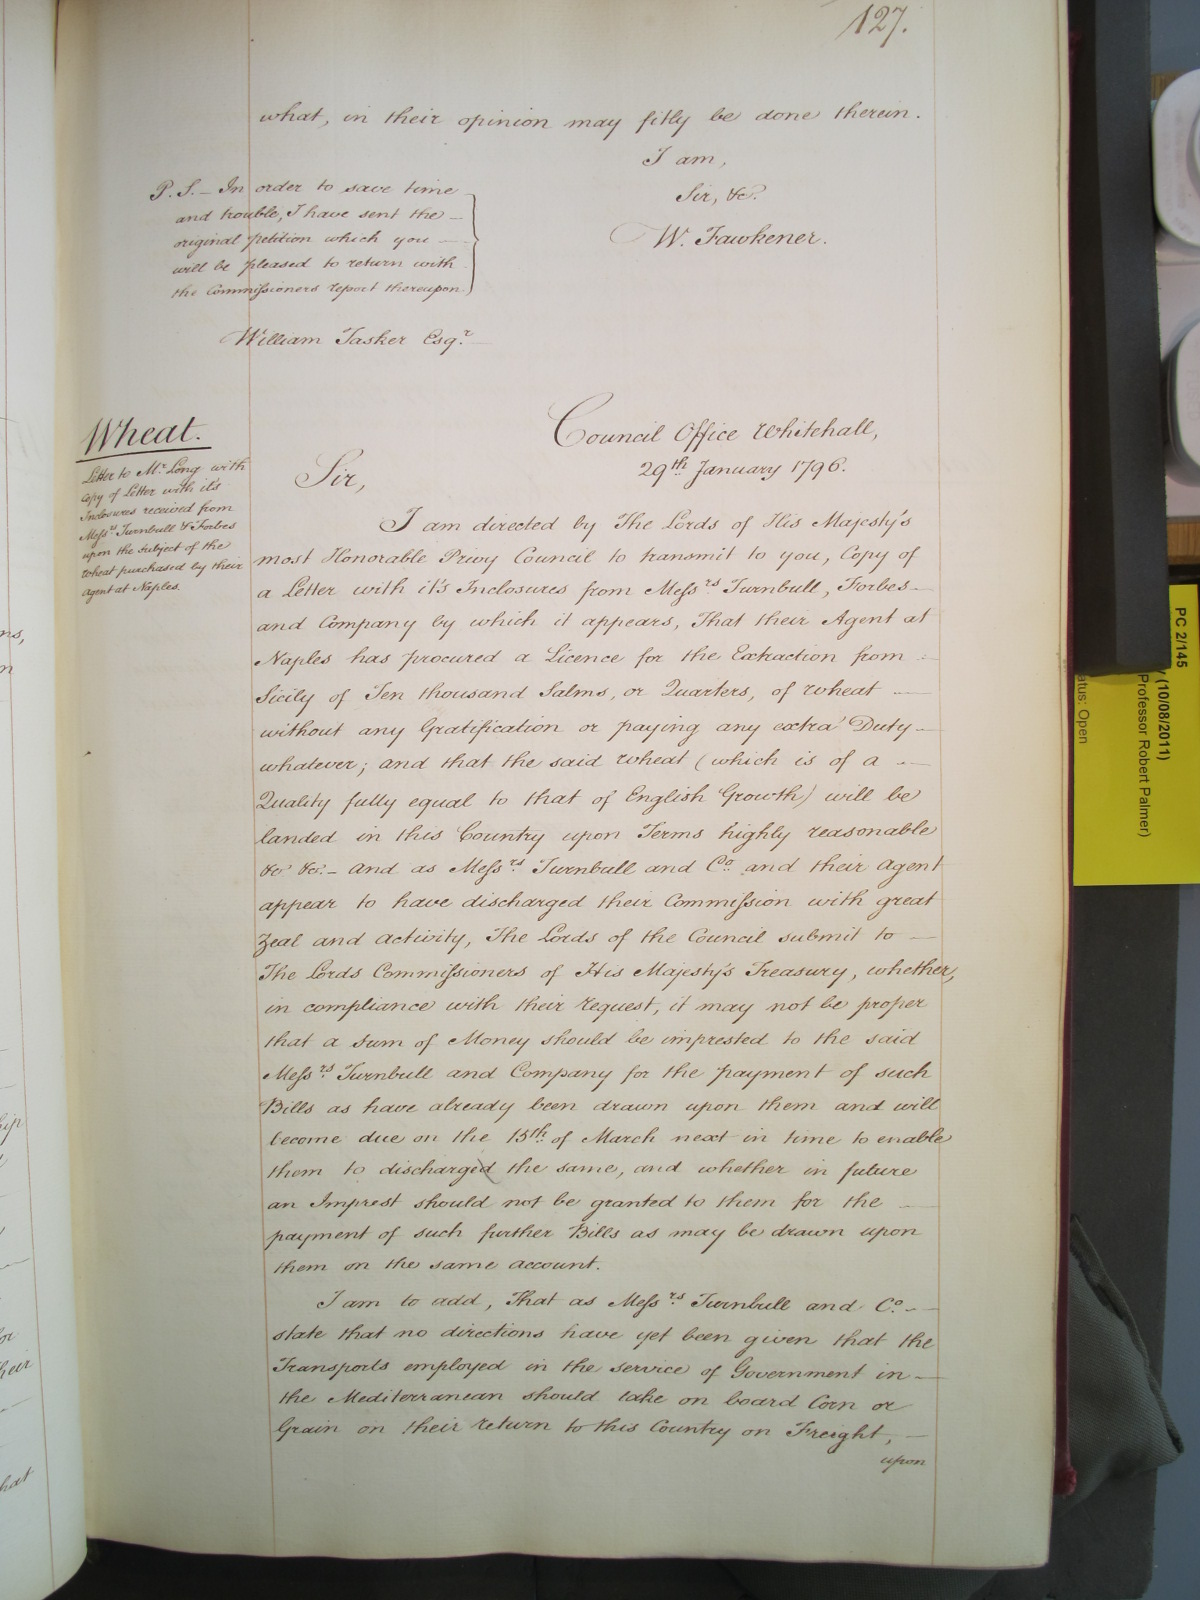 127.
what, in their opinion may fitly be done therein.
I am,
Sir, &c.
W. Fawkener.
P.S. — In order to save time
and trouble, I have sent the —
original petition which you —
will be pleased to return with
the Commissioners report thereupon.
William Tasker Esqr.
Wheat.
Letter to Mr. Long with
Copy of Letter with it's
Inclosures received from
Messrs. Turnbull & Forbes
upon the subject of the
Wheat purchased by their
agent at Naples.
Council Office Whitehall,
29th January 1796.
Sir,
I am directed by The Lords of His Majesty's
most Honorable Privy Council to transmit to you, Copy of
a Letter with it's Inclosures from Messrs. Turnbull, Forbes —
and Company by which it appears, That their Agent at
Naples has procured a Licence for the Extraction from —
Sicily of Ten thousand Salms, or Quarters, of Wheat —
without any Gratification or paying any extra Duty —
whatever; and that the said Wheat (which is of a —
Quality fully equal to that of English Growth) will be
landed in this Country upon Terms highly reasonable
&c &c. — And as Messrs. Turnbull and Co. and their Agent
appear to have discharged their Commission with great
Zeal and Activity, The Lords of the Council submit to —
The Lords Commissioners of His Majesty's Treasury, whether,
in compliance with their request, it may not be proper
that a Sum of Money should be imprested to the said
Messrs. Turnbull and Company for the payment of such
Bills as have already been drawn upon them and will
become due on the 15th. of March next in time to enable
them to discharged the same, and whether in future
an Imprest should not be granted to them for the —
payment of such further Bills as may be drawn upon
them on the same account.
I am to add, That as Messrs. Turnbull and Co. —
state that no directions have yet been given that the
Transports employed in the service of Government in —
the Mediterranean should take on board Corn or
Grain on their return to this Country on Freight, —
upon
ns,
n
hip
for
heir
hat
PC 2/145
(10/08/2011)
Professor Robert Palmer)
atus: Open